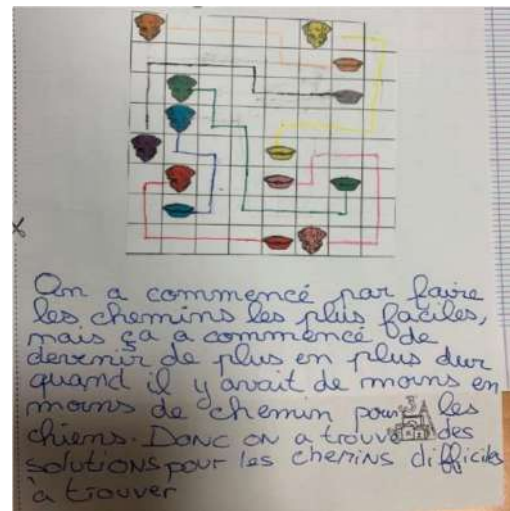 On a commencé par faire
les chemins les plus faciles,
mais ça a commencé de
devenir de plus en plus dur
quand il y avait de moins en
moins de chemin pour les
chiens. Donc on a trouvé des
solutions pour les chemins difficiles
à trouver